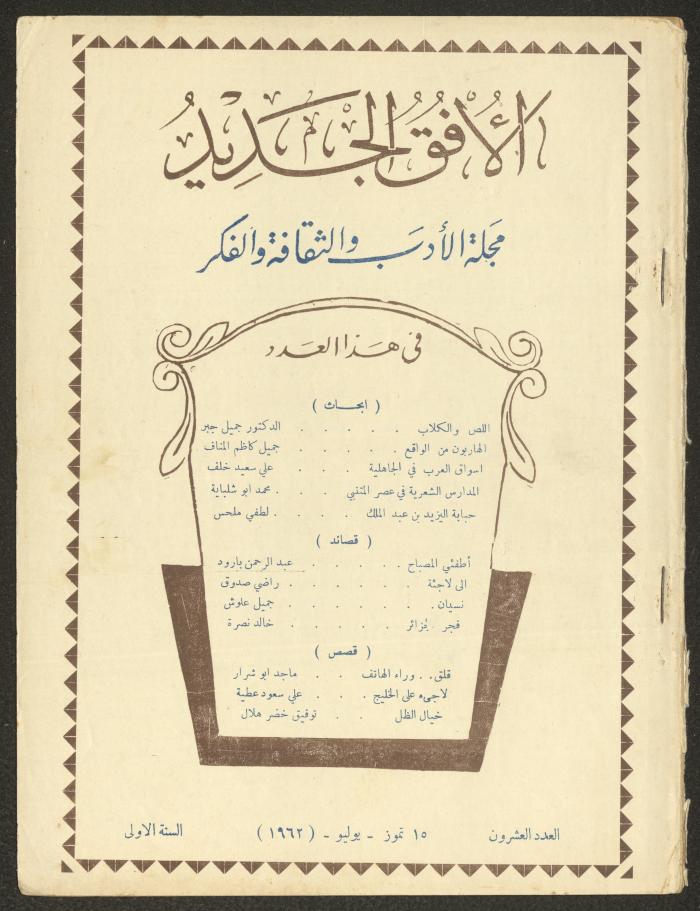 الأُفُقُ الجَدِيدُ
مجَلة الأدبَ والثقافة والفكر
في هَذا العَدد
( ابحاث )
اللص والكلاب . . . . . الدكتور جميل جبر
الهاربون من الواقع . . . . . جميل كاظم المناف
اسواق العرب في الجاهلية . . . علي سعيد خلف
المدارس الشعرية في عصر المتنبي . . . محمد ابو شلباية
حبابة اليزيد بن عبد الملك . . . . لطفي ملحس
( قصائد )
أطفئي المصباح . . . . . عبد الرحمن بارود
الى لاجئة . . . . . . راضي صدوق
نسيان . . . . . . جميل علوش
فجر الجزائر . . . . . خالد نصرة
( قصص )
قلق . . وراء الهاتف . . ماجد ابو شرار
لاجىء على الخليج . . . علي سعود عطية
خيال الظل . . توفيق خضر هلال
العدد العشرون ١٥ تموز - يوليو - ( ١٩٦٢ ) السنة الاولى